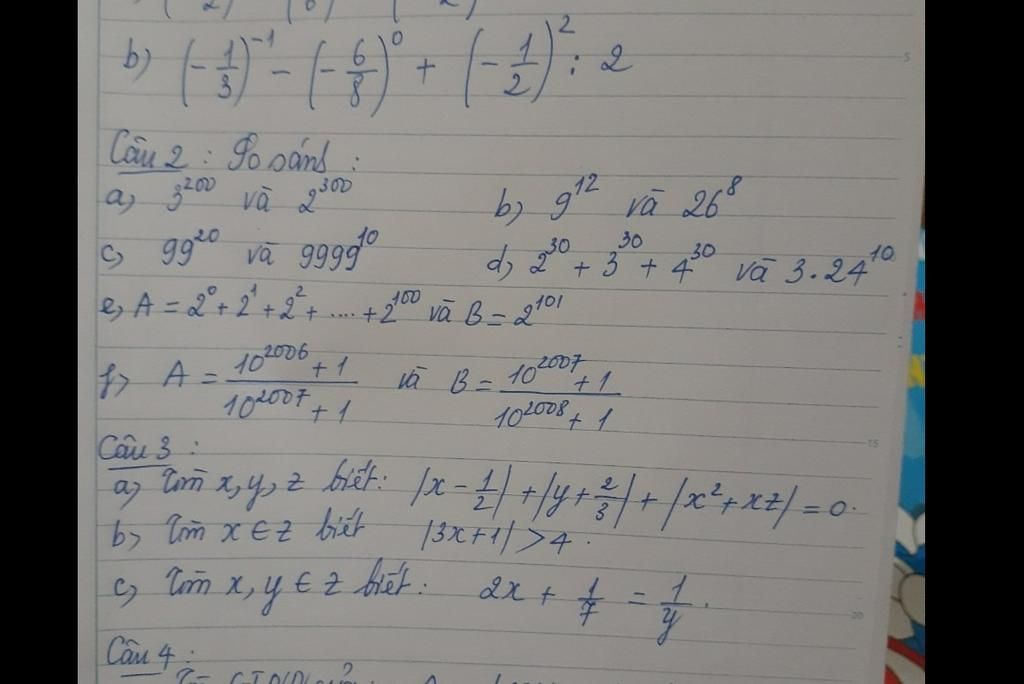 b) (-1/3)^-1 - (-6/8)^0 + (-1/2)^2 : 2
Câu 2 : So sánh :
a) 3^200 và 2^300 b) 9^12 và 26^8
c) 99^20 và 9999^10 d) 2^30 + 3^30 + 4^30 và 3.24^10
e) A = 2^0 + 2^1 + 2^2 + .... + 2^100 và B = 2^101
f) A = (10^2006 + 1)/(10^2007 + 1) và B = (10^2007 + 1)/(10^2008 + 1)
Câu 3 :
a) Tìm x, y, z biết: |x - 1/2| + |y + 2/3| + |x^2 + xz| = 0.
b) Tìm x ∈ z biết |3x+1| > 4.
c) Tìm x, y ∈ z biết: 2x + 1/7 = 1/y.
Câu 4 :